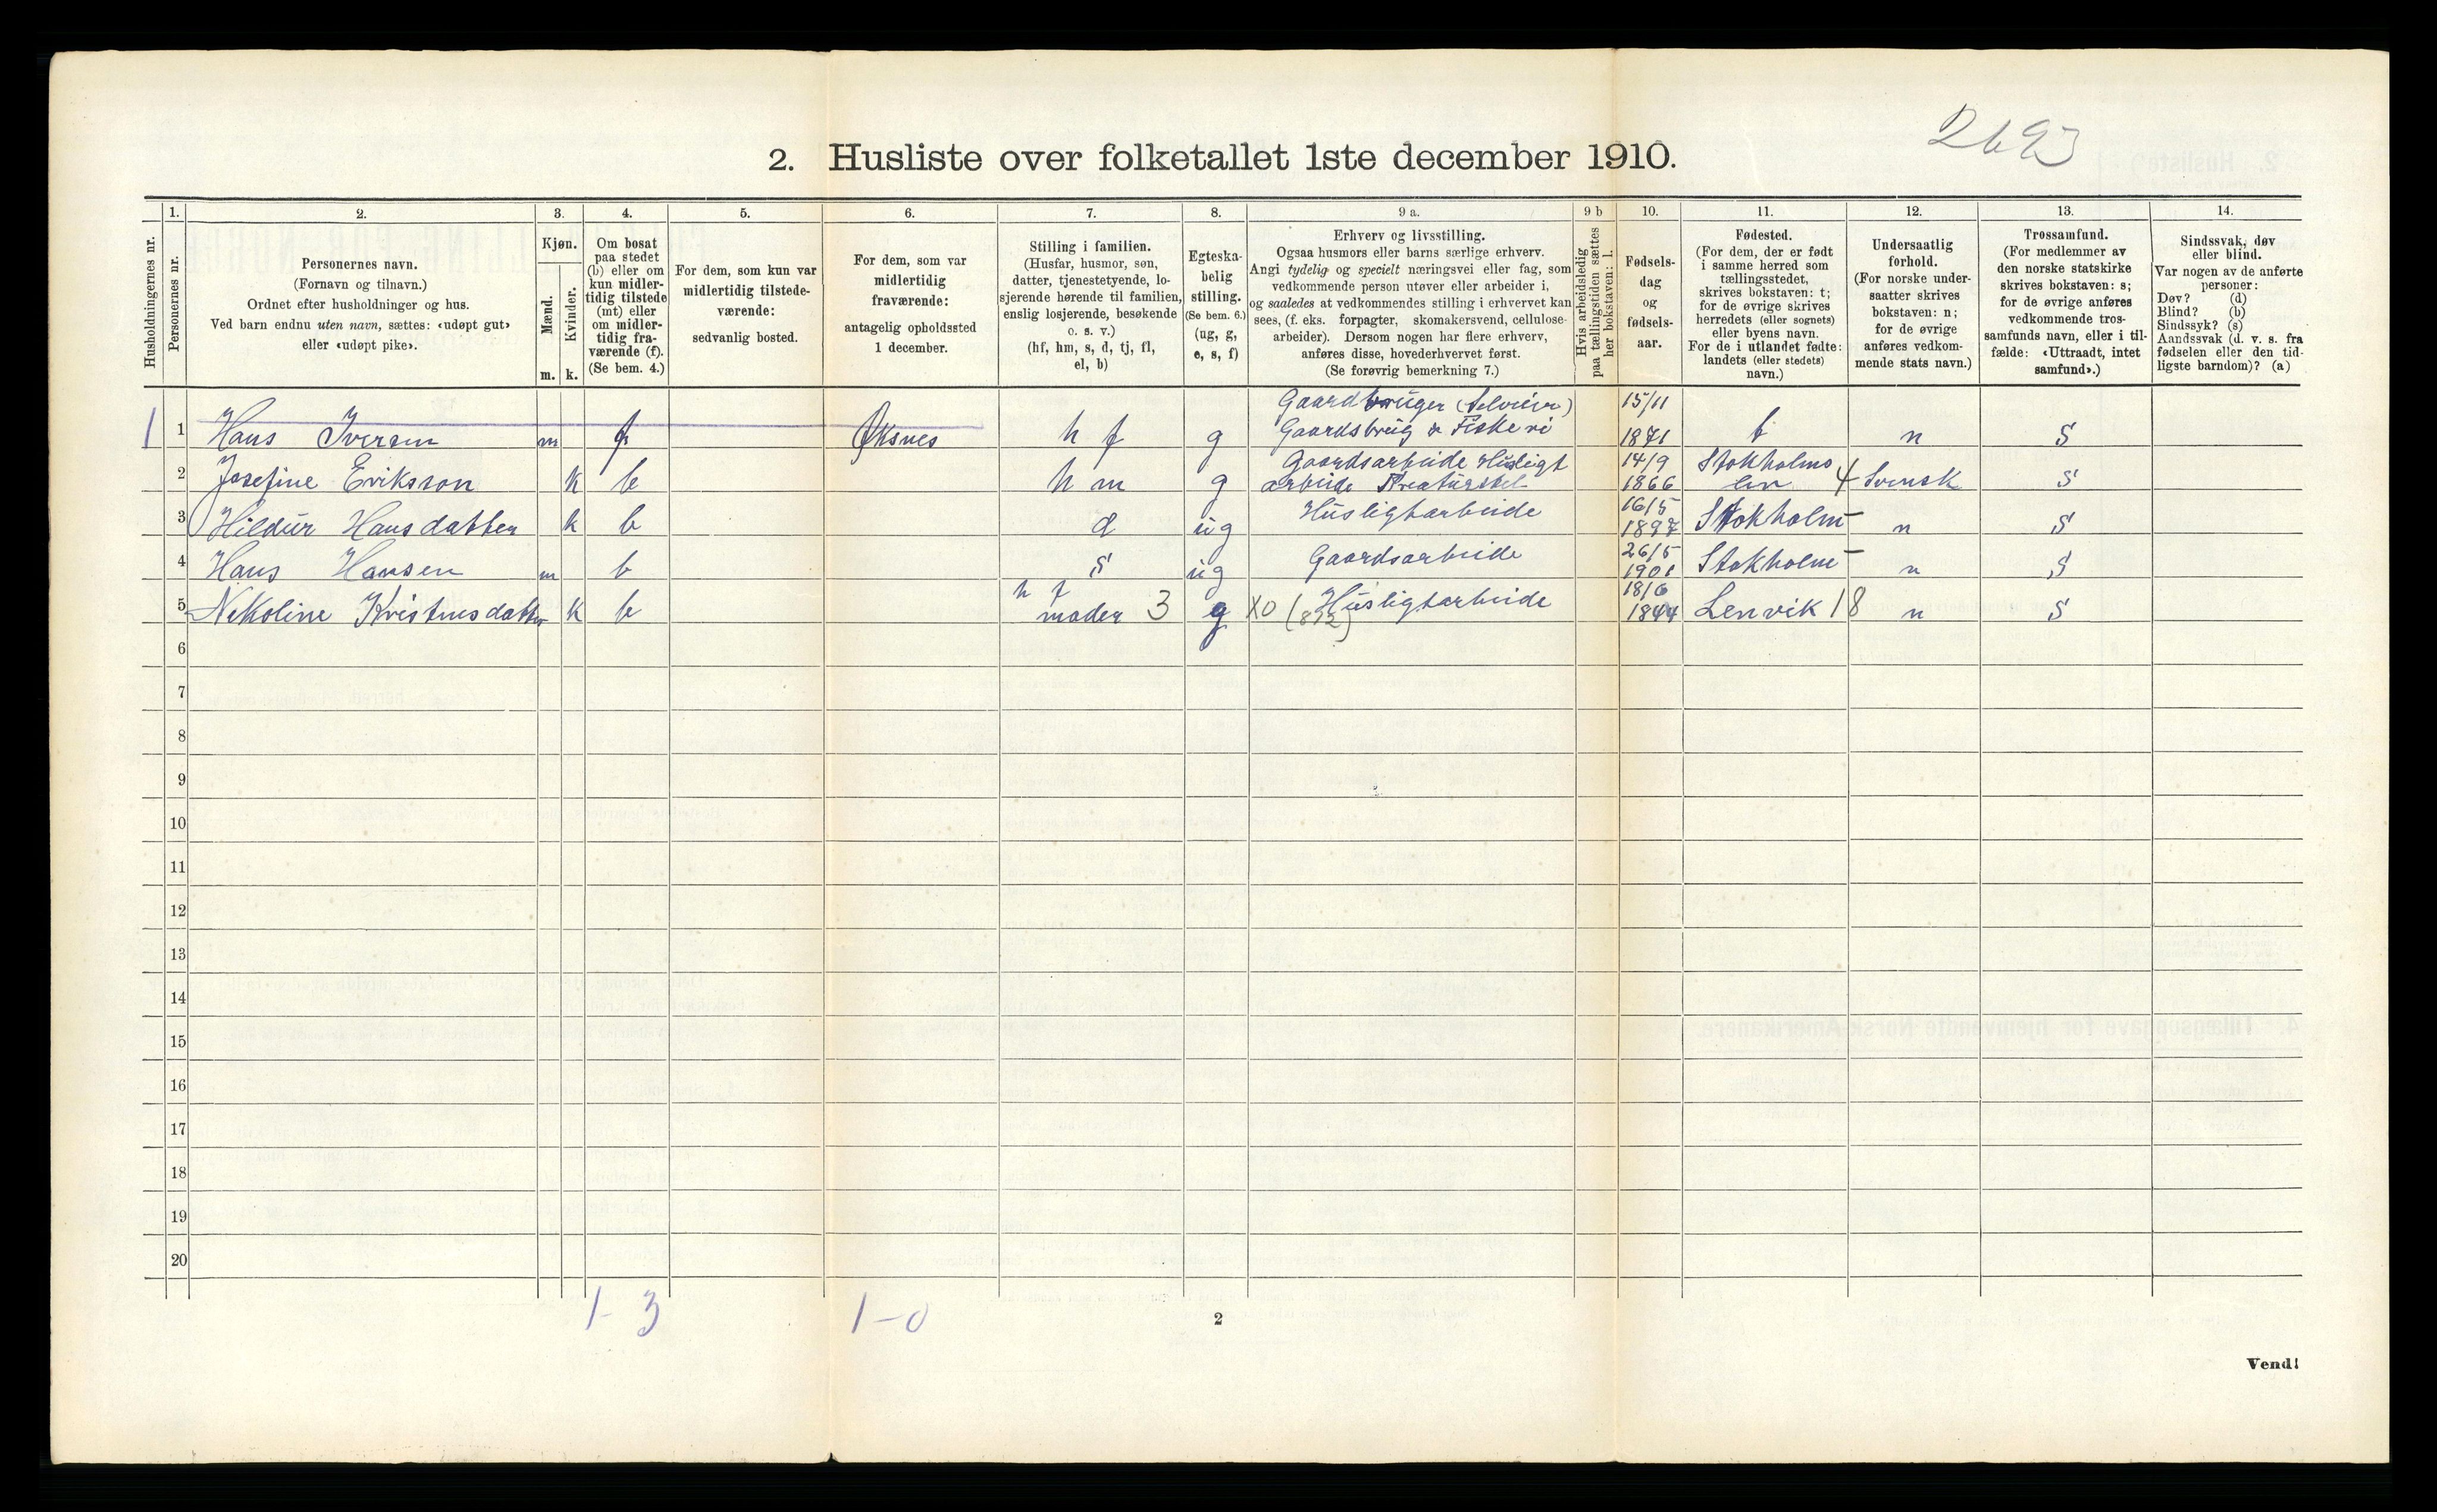 2693
2. Husliste over folketallet 1ste december 1910.
Husholdningernes nr.
1. Personernes nr.
2. Personernes navn.
(Fornavn og tilnavn.)
Ordnet efter husholdninger og hus.
Ved barn endnu uten navn, sættes: «udøpt gut»
eller «udøpt pike».
3. Kjøn.
Mænd. m.
Kvinder. k.
4. Om bosat
paa stedet
(b) eller om
kun midler-
tidig tilstede
(mt) eller
om midler-
tidig fra-
værende (f).
(Se bem. 4.)
5. For dem, som kun var
midlertidig tilstede-
værende:
sedvanlig bosted.
6. For dem, som var
midlertidig
fraværende:
antagelig opholdssted
1 december.
7. Stilling i familien.
(Husfar, husmor, søn,
datter, tjenestetyende, lo-
sjerende hørende til familien,
enslig losjerende, besøkende
o. s. v.)
(hf, hm, s, d, tj, fl,
el, b)
8. Egteska-
belig
stilling.
(Se bem. 6.)
(ug, g,
e, s, f)
9 a. Erhverv og livsstilling.
Ogsaa husmors eller barns særlige erhverv.
Angi tydelig og specielt næringsvei eller fag, som
vedkommende person utøver eller arbeider i,
og saaledes at vedkommendes stilling i erhvervet kan
sees, (f. eks. forpagter, skomakersvend, cellulose-
arbeider). Dersom nogen har flere erhverv,
anføres disse, hovederhvervet først.
(Se forøvrig bemerkning 7.)
9 b Hvis arbeidsledig
paa tællingstiden sættes
her bokstaven: l.
10. Fødsels-
dag
og
fødsels-
aar.
11. Fødested.
(For dem, der er født
i samme herred som
tællingsstedet,
skrives bokstaven: t;
for de øvrige skrives
herredets (eller sognets)
eller byens navn.
For de i utlandet fødte:
landets (eller stedets)
navn.)
12. Undersaatlig
forhold.
(For norske under-
saatter skrives
bokstaven: n;
for de øvrige
anføres vedkom-
mende stats navn.)
13. Trossamfund.
(For medlemmer av
den norske statskirke
skrives bokstaven: s;
for de øvrige anføres
vedkommende tros-
samfunds navn, eller i til-
fælde: «Uttraadt, intet
samfund».)
14. Sindssvak, døv
eller blind.
Var nogen av de anførte
personer:
Døv? (d)
Blind? (b)
Sindssyk? (s)
Aandssvak (d. v. s. fra
fødselen eller den tid-
ligste barndom)? (a)
1 1 Hans Iversen m f Øksnes h f g Gaardbruger (Selveier) Gaardsbrug & Fiskeri 15/11 1871 t n S
2 Josefine Eriksson k b h m g Gaardsarbeide Husligt arbeide Kreaturstel 14/9 1866 Stokholms len 4 Svensk S
3 Hildur Hansdatter k b d ug Husligtarbeide 16/5 1897 Stokholm n S
4 Hans Hansen m b s ug Gaardsarbeide 26/5 1901 Stokholm n S
5 Nekoline Kristensdatter k b h f moder 3 g XO Husligtarbeide 18/6 1844 Lenvik 18 n S
6
7
8
9
10
11
12
13
14
15
16
17
18
19
20
1-3 1-0
2
Vend!